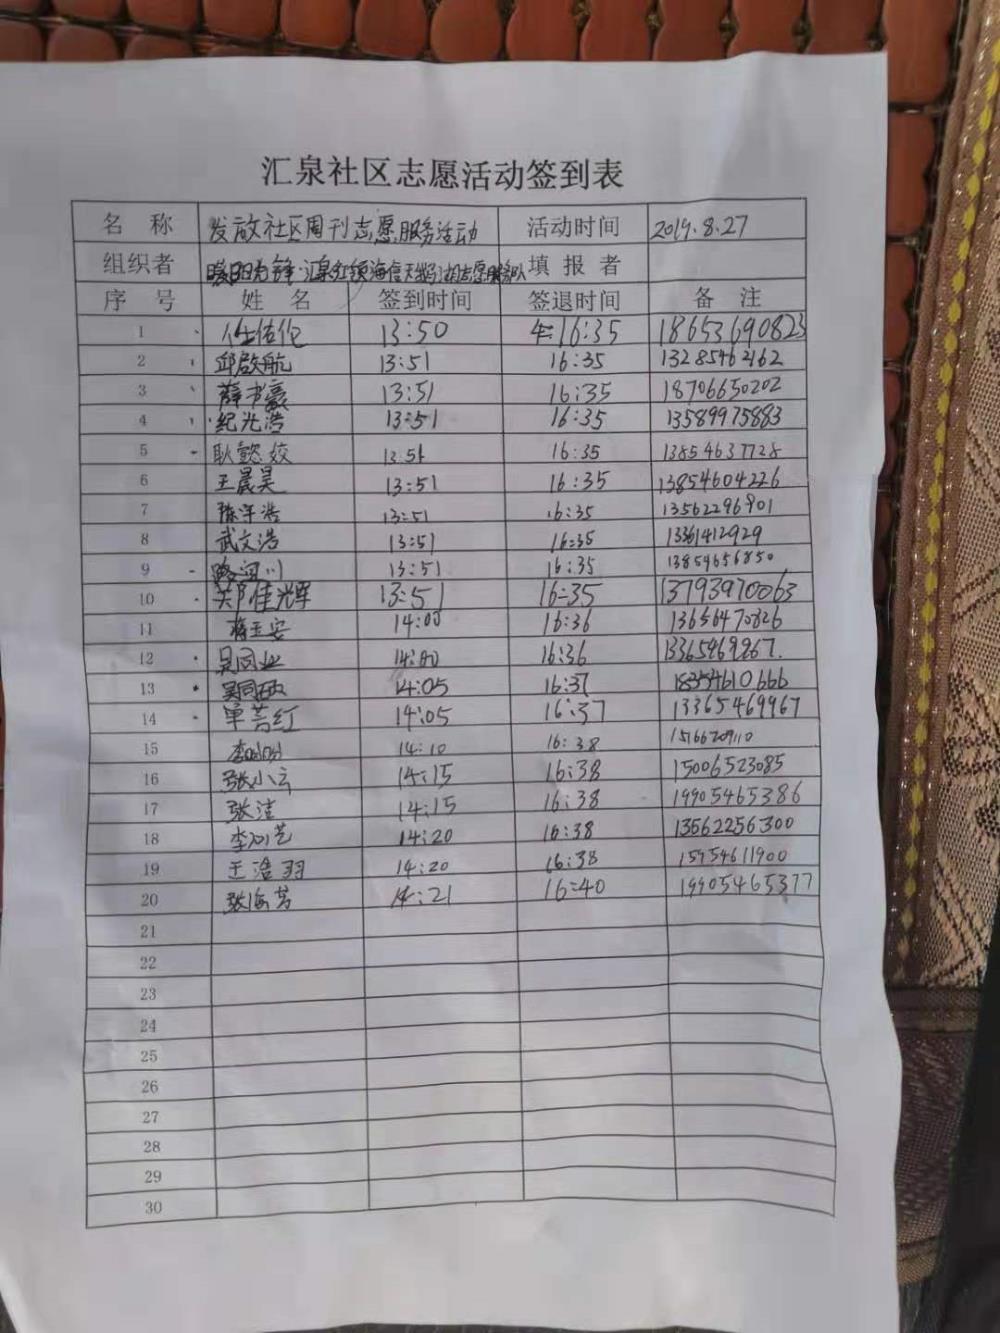 汇泉社区志愿活动签到表
名 称 发放社区周刊志愿服务活动 活动时间 2019.8.27
组织者 暖阳先锋·汇泉红领海信天鹅湖志愿服务队 填报者
序 号 姓 名 签到时间 签退时间 备 注
1 任佑伦 13:50 16:35 18653690823
2 邱啟航 13:51 16:35 13285462162
3 薛书豪 13:51 16:35 18706650202
4 纪光浩 13:51 16:35 13589975883
5 耿懿姣 13:51 16:35 13854637728
6 王晨昊 13:51 16:35 13854604226
7 陈宇浩 13:51 16:35 13562296901
8 武文浩 13:51 16:35 13361412929
9 13:51 16:35 13854656850
10 郑佳辉 13:51 16:35 13793970063
11 蒋玉安 14:00 16:36 13656470826
12 吴同业 14:00 16:36 13365469967.
13 14:05 16:37 18354610666
14 单菩红 14:05 16:37 13365469967
15 14:10 16:38 15166209110
16 张小云 14:15 16:38 15006523085
17 张洁 14:15 16:38 19905465386
18 14:20 16:38 13562256300
19 王浩羽 14:20 16:38 15954611900
20 张海芳 14:21 16:40 19905465377
21
22
23
24
25
26
27
28
29
30